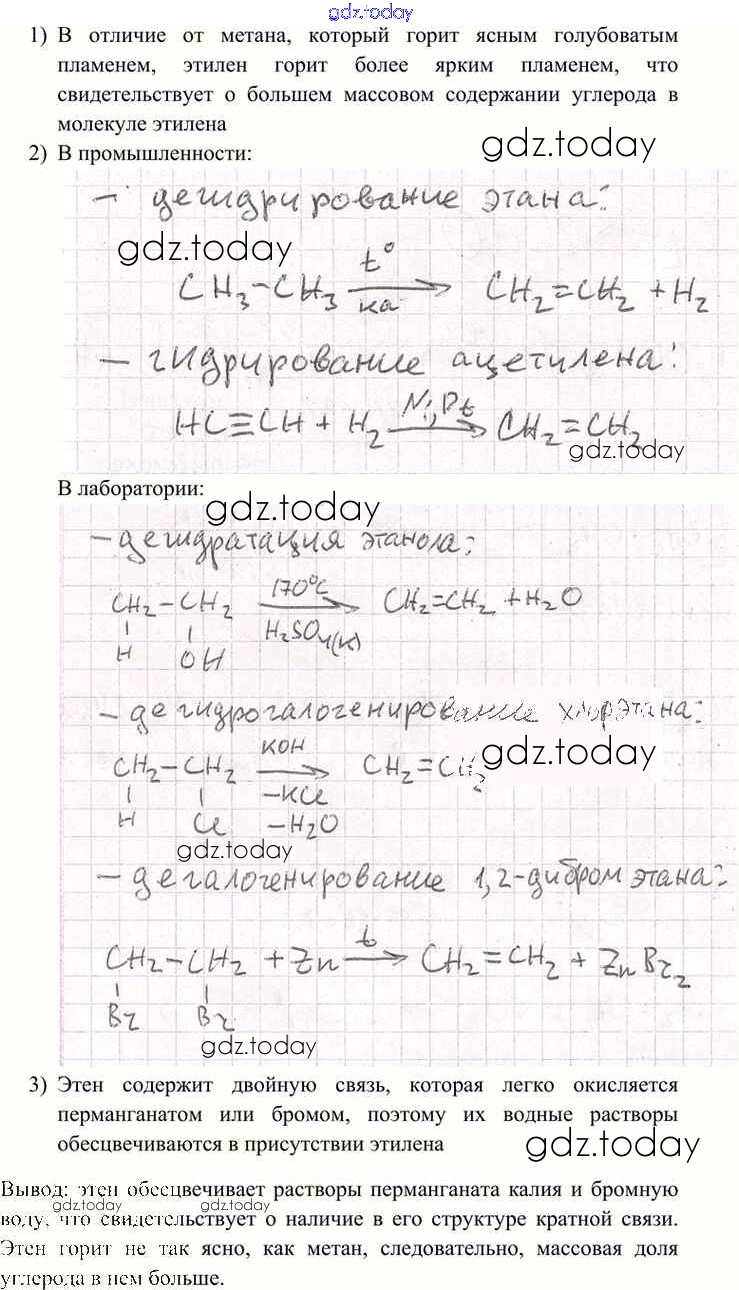 gdz.today
1) В отличие от метана, который горит ясным голубоватым
пламенем, этилен горит более ярким пламенем, что
свидетельствует о большем массовом содержании углерода в
молекуле этилена
gdz.today
2) В промышленности:
- дегидрирование этана:
gdz.today
CH3-CH3 t° ка → CH2=CH2 + H2
- гидрирование ацетилена:
HC≡CH + H2 Ni, Pt → CH2=CH2
gdz.today
В лаборатории:
gdz.today
- дегидратация этанола:
CH2-CH2 170°C H2SO4(к) → CH2=CH2 + H2O
H OH
- дегидрогалогенирование хлорэтана:
CH2-CH2 КОН → CH2=CH2
gdz.today
H Cl -KCl -H2O
gdz.today
- дегалогенирование 1,2-дибромэтана:
CH2-CH2 + Zn t → CH2=CH2 + ZnBr2
Br Br
gdz.today
3) Этен содержит двойную связь, которая легко окисляется
перманганатом или бромом, поэтому их водные растворы
обесцвечиваются в присутствии этилена
gdz.today
Вывод: этен обесцвечивает растворы перманганата калия и бромную
gdz.today gdz.today
воду, что свидетельствует о наличие в его структуре кратной связи.
Этен горит не так ясно, как метан, следовательно, массовая доля
углерода в нем больше.